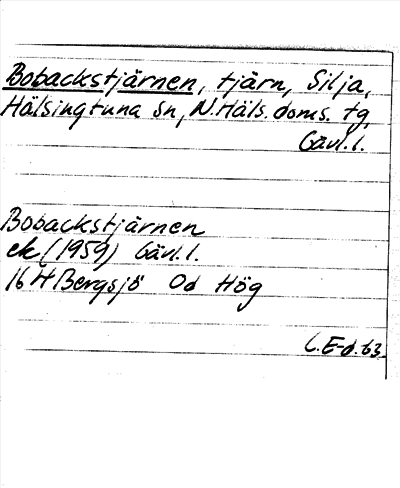 Bobackstjärnen, tjärn, Silja,
Hälsingtuna sn, N.Häls. doms. tg,
Gävl. l.
Bobackstjärnen
ek (1959) Gävl. l.
16 H Bergsjö Od Hög
C.E-d. 63